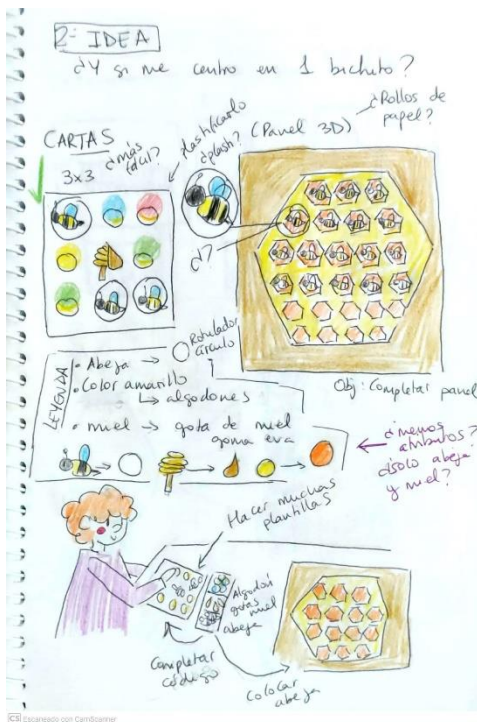 2ª IDEA
¿Y si me centro en 1 bichito?
CARTAS
3x3
¿más
fácil?
plastificarlo
¿plash?
(Panel 3D)
¿Rollos de
papel?
¿V?
LEYENDA
• Abeja → Rotulador
círculo
• Color amarillo
↳ algodones
• miel → gota de miel
goma eva
Obj: Completar panel
¿menos
atributos?
¿solo abeja
y miel?
Hacer muchas
plantillas
Algodón
gotas
miel
abeja
Completar
código
Colocar
abeja
CS Escaneado con CamScanner